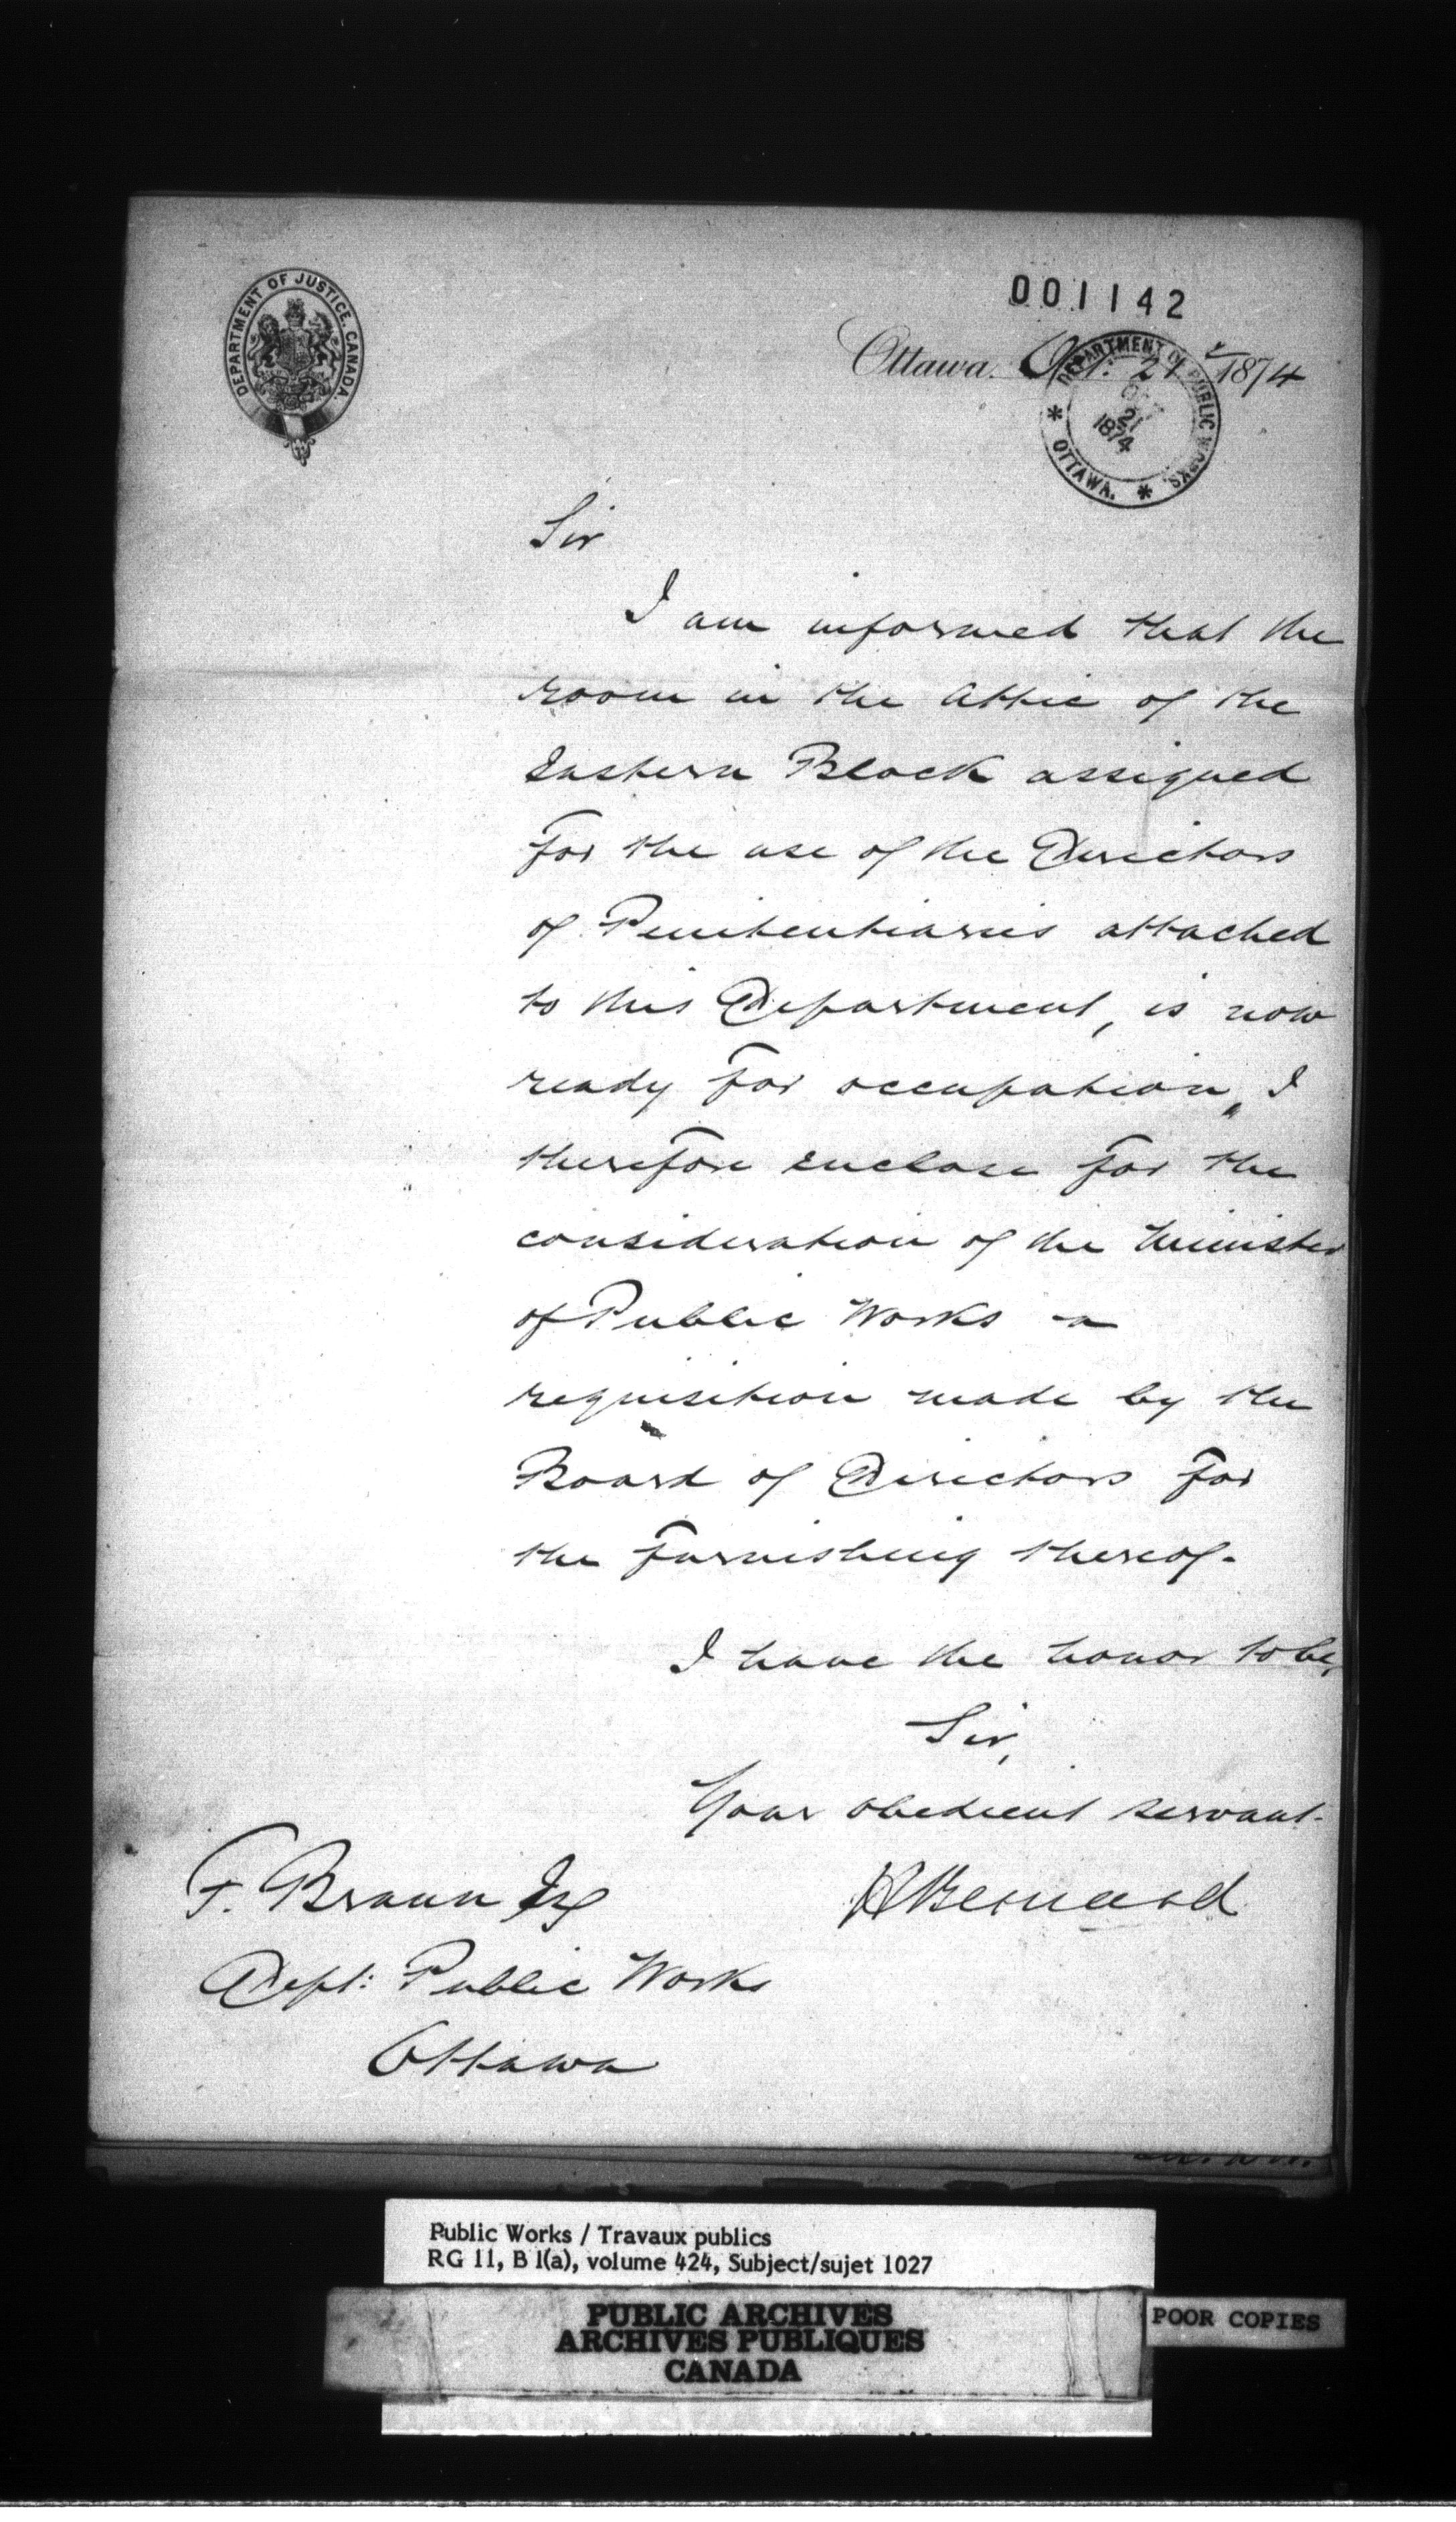 DEPARTMENT OF JUSTICE. CANADA.
001142
Ottawa. Oct: 21 1874
DEPARTMENT OF PUBLIC WORKS.
OCT
21
1874
* OTTAWA. *
Sir
I am informed that the
room in the Attic of the
Eastern Block assigned
for the use of the Directors
of Penitentiaries attached
to this Department, is now
ready for occupation, I
therefore enclose for the
consideration of the Minister
of Public Works - a
requisition made by the
Board of Directors for
the furnishing thereof.
I have the honor to be,
Sir,
Your obedient servant.
H Bernard
F. Braun Esq
Dept: Public Works
Ottawa
Public Works / Travaux publics
RG 11, B 1(a), volume 424, Subject/sujet 1027
PUBLIC ARCHIVES
ARCHIVES PUBLIQUES
CANADA
POOR COPIES